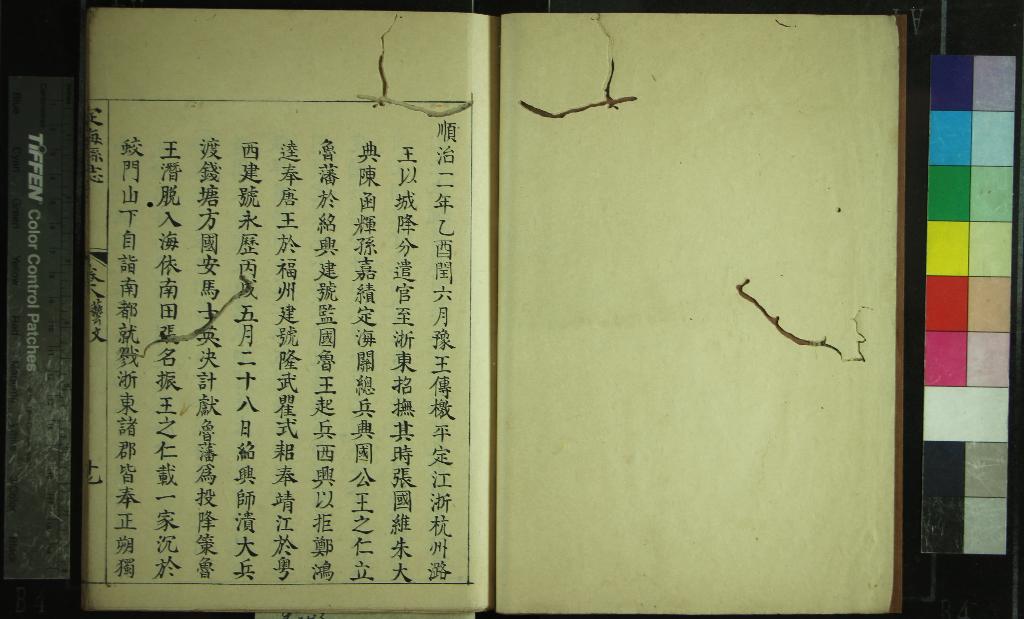 順治二年乙酉閏六月豫王傳檄平定江浙杭州潞
王以城降分遣官至浙東招撫其時張國維朱大
典陳函輝孫嘉績定海關總兵興國公王之仁立
魯藩於紹興建號監國魯王起兵西興以拒鄭鴻
逵奉唐王於福州建號隆武瞿式耜奉靖江於粵
西建號永歷丙戌五月二十八日紹興師潰大兵
渡錢塘方國安馬士英決計獻魯藩為投降策魯
王潛脫入海依南田張名振王之仁載一家沉於
蛟門山下自詣南都就戮浙東諸郡皆奉正朔獨
定海縣志
卷八藝文
TIFFEN Color Control Patches